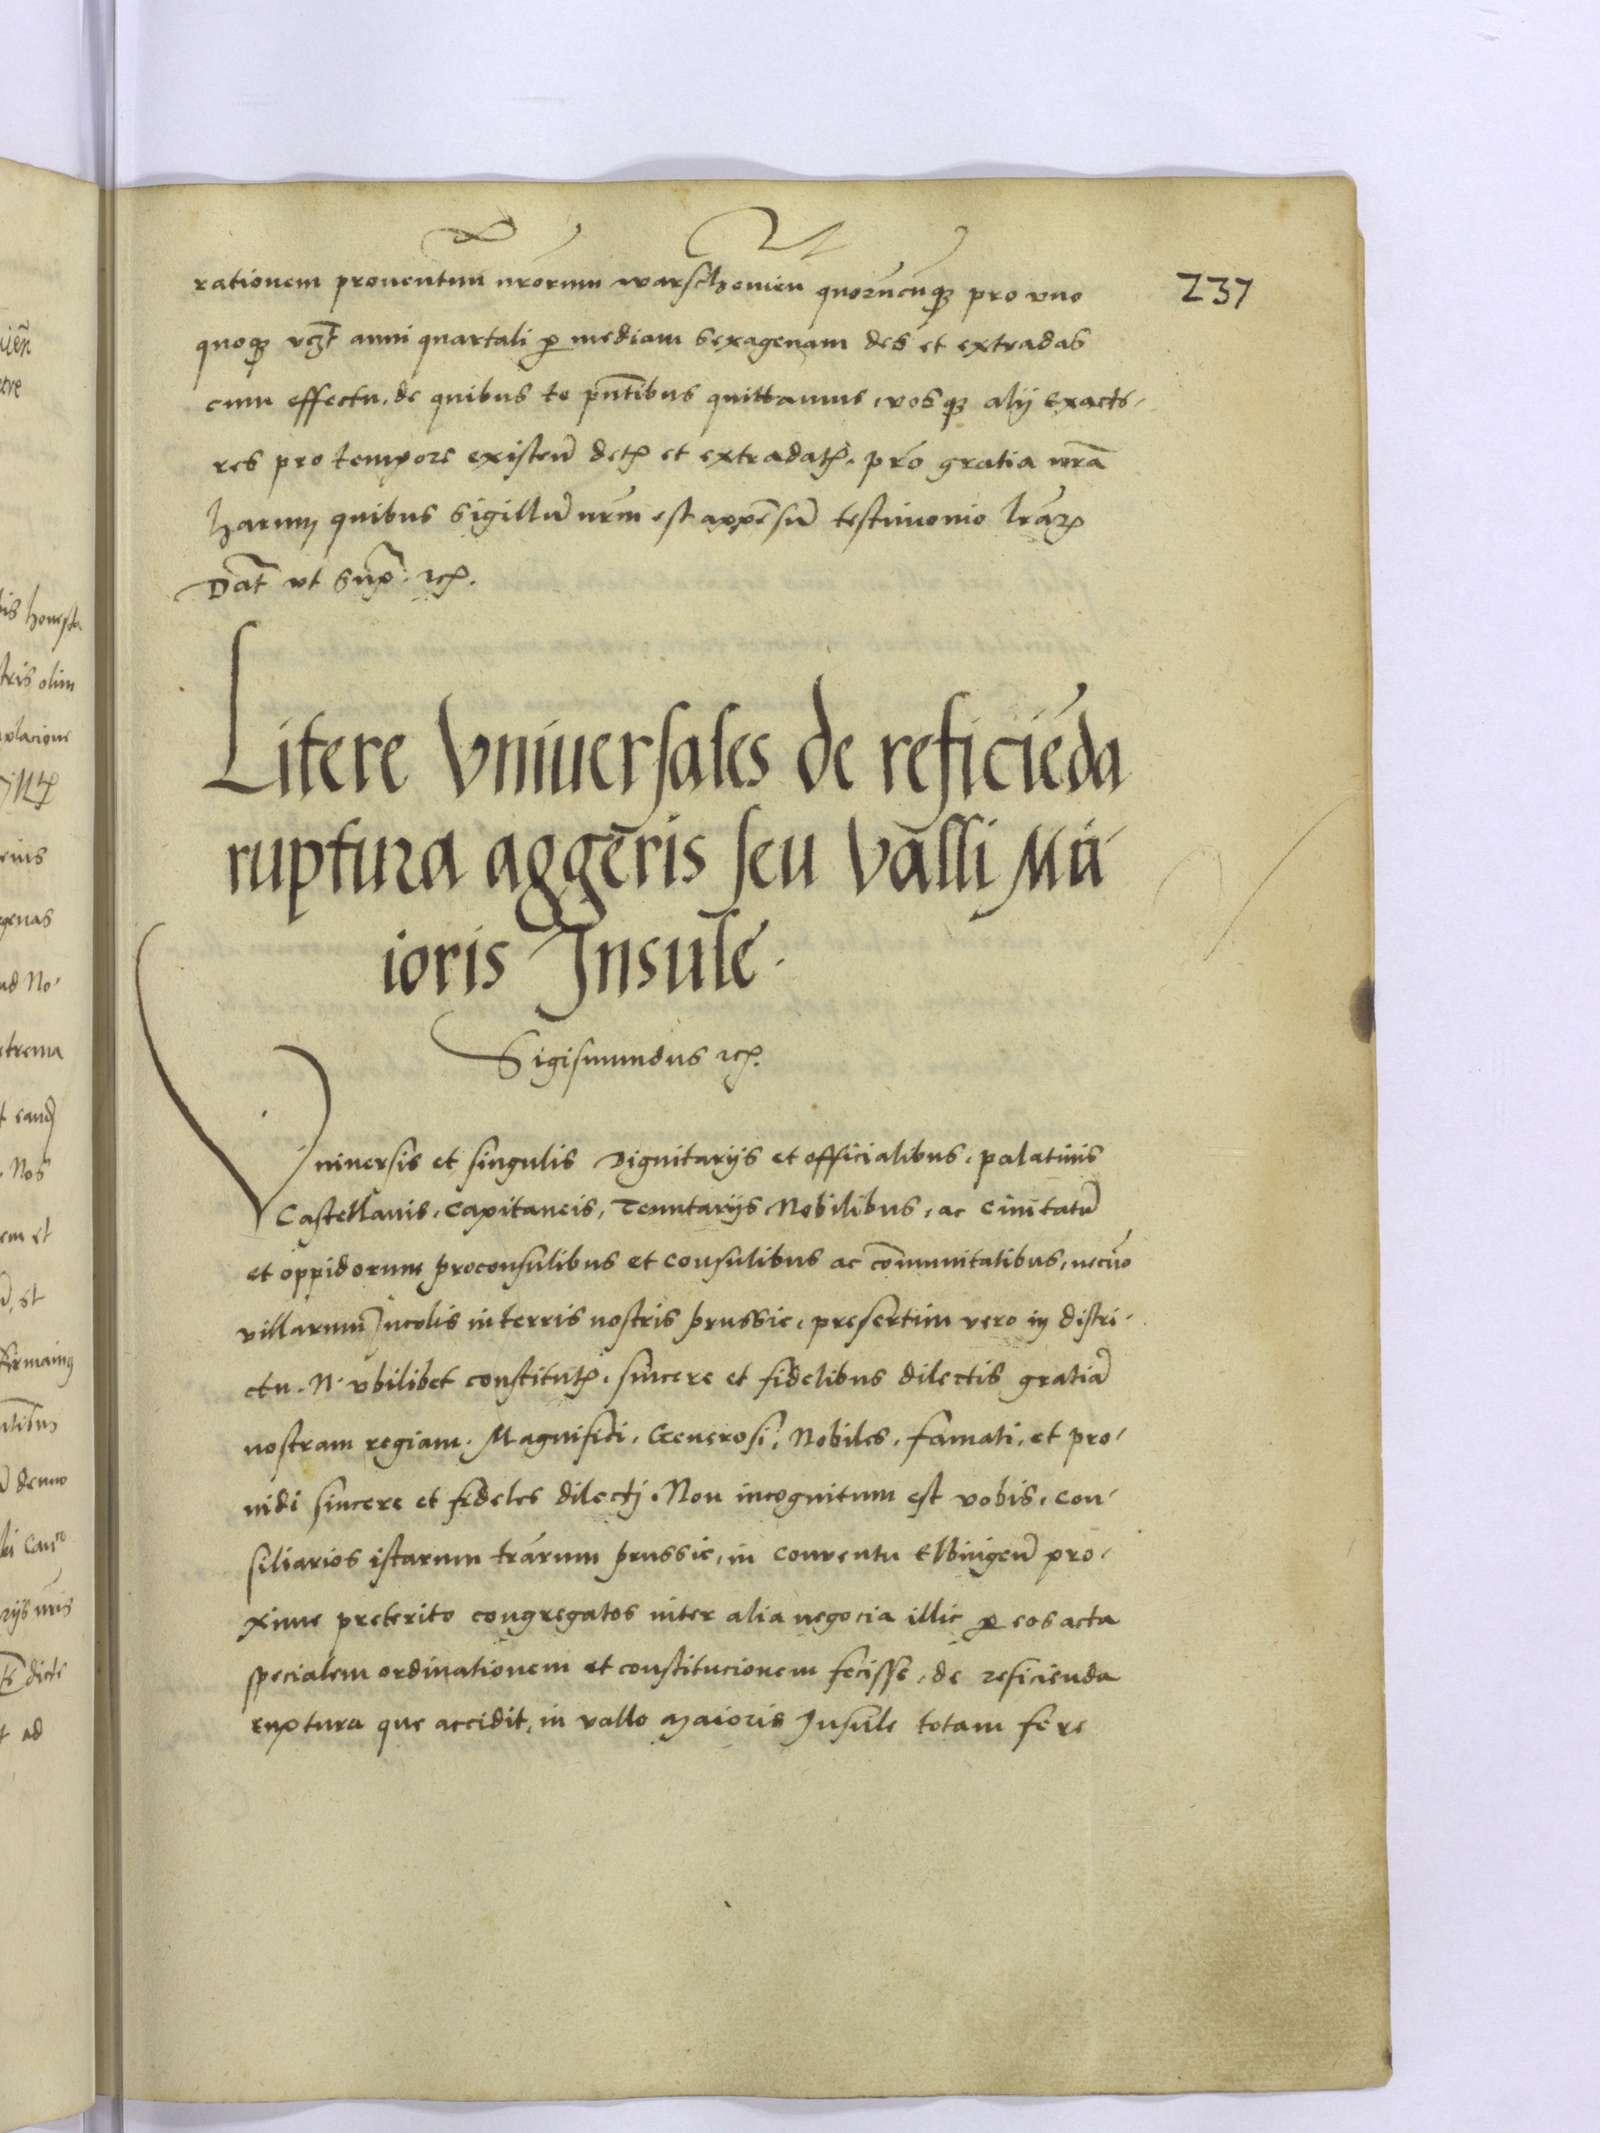 rationem prouentuū nrōrum warschouien quorūcūqꝫ pro vno
237
quoqꝫ vꝫt anni quartali ꝑ mediam sexagenam des et extradas
cum effectu, de quibus te pn̄tibus quittamus, vosqꝫ alij exacto-
res pro tempore existen̄ detꝭ et extradatꝭ. pro gratia nrā
harum quibus sigillū nrm̄ est appēsū testimonio lrāꝝ
Dat̄ vt supᷓ. ꝛcꝭ.
Litere Vniuersales de reficiēda
ruptura aggeris seu valli Ma-
ioris Insule.
Sigismundus ꝛcꝭ.
Vniuersis et singulis Dignitarijs et officialibus, palatinis
Castellanis, Capitaneis, Tenutarijs Nobilibus, ac Ciuitatū
et oppidorum proconsulibus et consulibus ac cōmunitatibus, necnō
villarum Incolis in terris nostris prussie, presertim vero in distri-
ctu. N. vbilibet constitutꝭ. sincere et fidelibus dilectis gratiā
nostram regiam. Magnifici, Generosi, Nobiles, famati, et pro-
uidi sincere et fideles dilecti. Non incognitum est vobis, con-
siliarios istarum trārum prussie, in conuentu Elbingen̄ pro-
xime preterito congregatos inter alia negocia illic ꝑ eos acta
specialem ordinationem et constitucionem fecisse, de reficienda
ruptura que accidit, in vallo maioris Insule totam fere